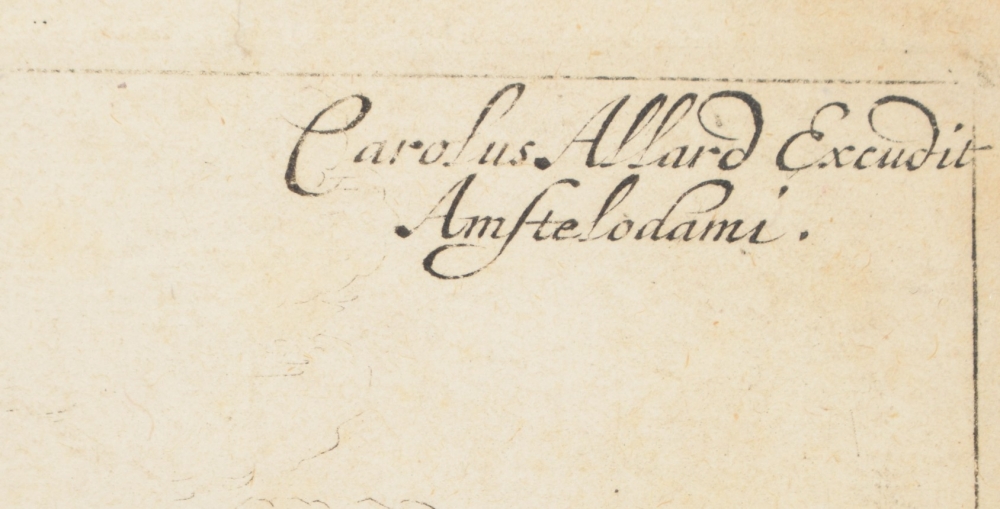 Carolus Allard Excudit
Amſtelodami.